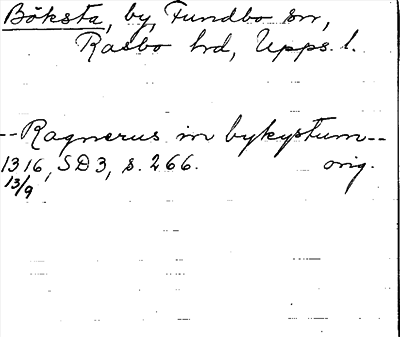 Böksta, by, Fundbo sn,
Rasbo hd, Upps. l.
--Ragnerus in bykystum--
1316, SD3, s. 266. orig.
13/9